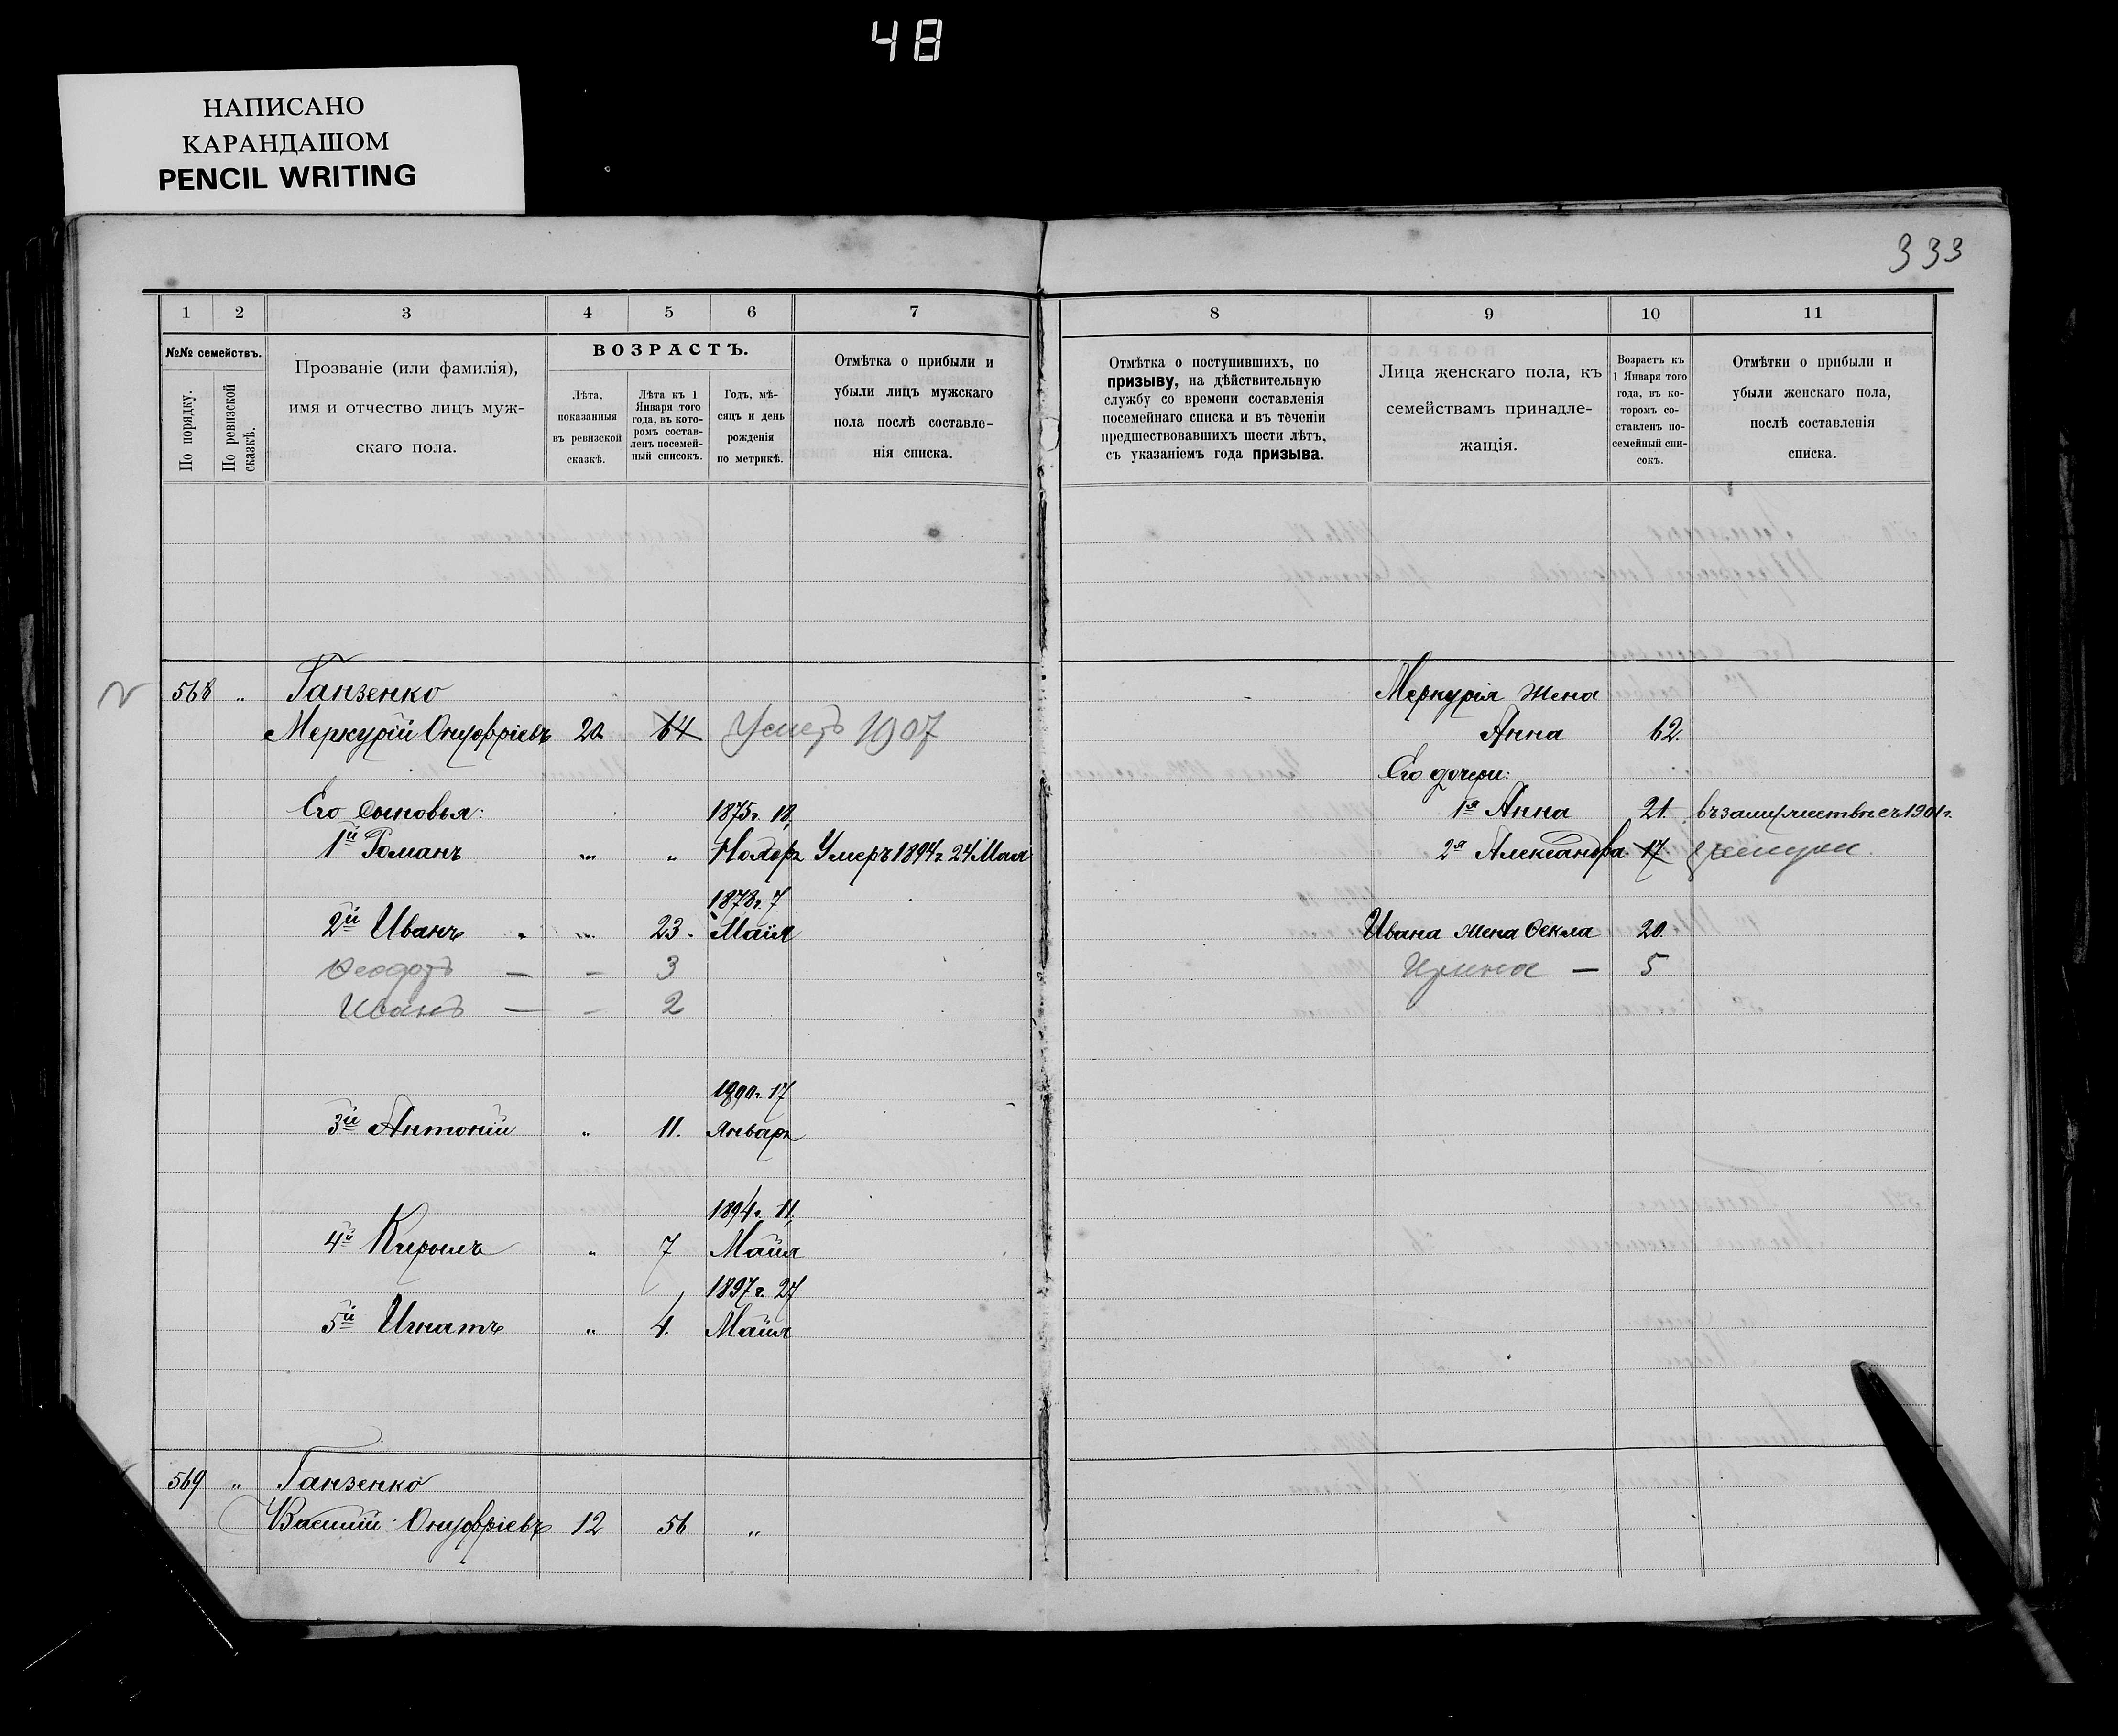 48
НАПИСАНО
КАРАНДАШОМ
PENCIL WRITING
333
1 2 3 4 5 6 7
№№ семействъ.
По порядку.
По ревизской сказкѣ.
Прозваніе (или фамилія),
имя и отчество лицъ муж-
скаго пола.
ВОЗРАСТЪ.
Лѣта,
показанныя
въ ревизской
сказкѣ.
Лѣта къ 1
Января того
года, въ кото-
ромъ состав-
ленъ посемей-
ный списокъ.
Годъ, мѣ-
сяцъ и день
рожденія
по метрикѣ.
Отмѣтка о прибыли и
убыли лицъ мужскаго
пола послѣ составле-
нія списка.
568 „ Ганзенко
Меркурій Онуфріевъ 20 64 Умеръ 1907
Его сыновья: 1875г. 18,
1й Романъ „ „ Ноябр Умеръ 1894г. 24 Мая
1878г. 7
2й Иванъ „ 23. Маія
Феодоръ — — 3
Иванъ — — 2
1890г. 17
3й Антоній „ 11. Январ
1894г. 11,
4й Кирилъ „ 7 Маія
1897г. 27
5й Игнатъ „ 4. Маія
569 „ Ганзенко
Василій Онуфріевъ 12 56 „
8 9 10 11
Отмѣтка о поступившихъ, по
призыву, на дѣйствительную
службу со времени составленія
посемейнаго списка и въ теченіи
предшествовавшихъ шести лѣтъ,
съ указаніемъ года призыва.
Лица женскаго пола, къ
семействамъ принадле-
жащія.
Возрастъ къ
1 Января того
года, въ ко-
торомъ со-
ставленъ по-
семейный спи-
сокъ.
Отмѣтки о прибыли и
убыли женскаго пола,
послѣ составленія
списка.
Меркурія жена
Анна 62.
Его дочери:
1я Анна 21. въ замужествѣ съ 1901г.
2я Александра 17
Ивана жена Фекла 20.
Ирина — 5